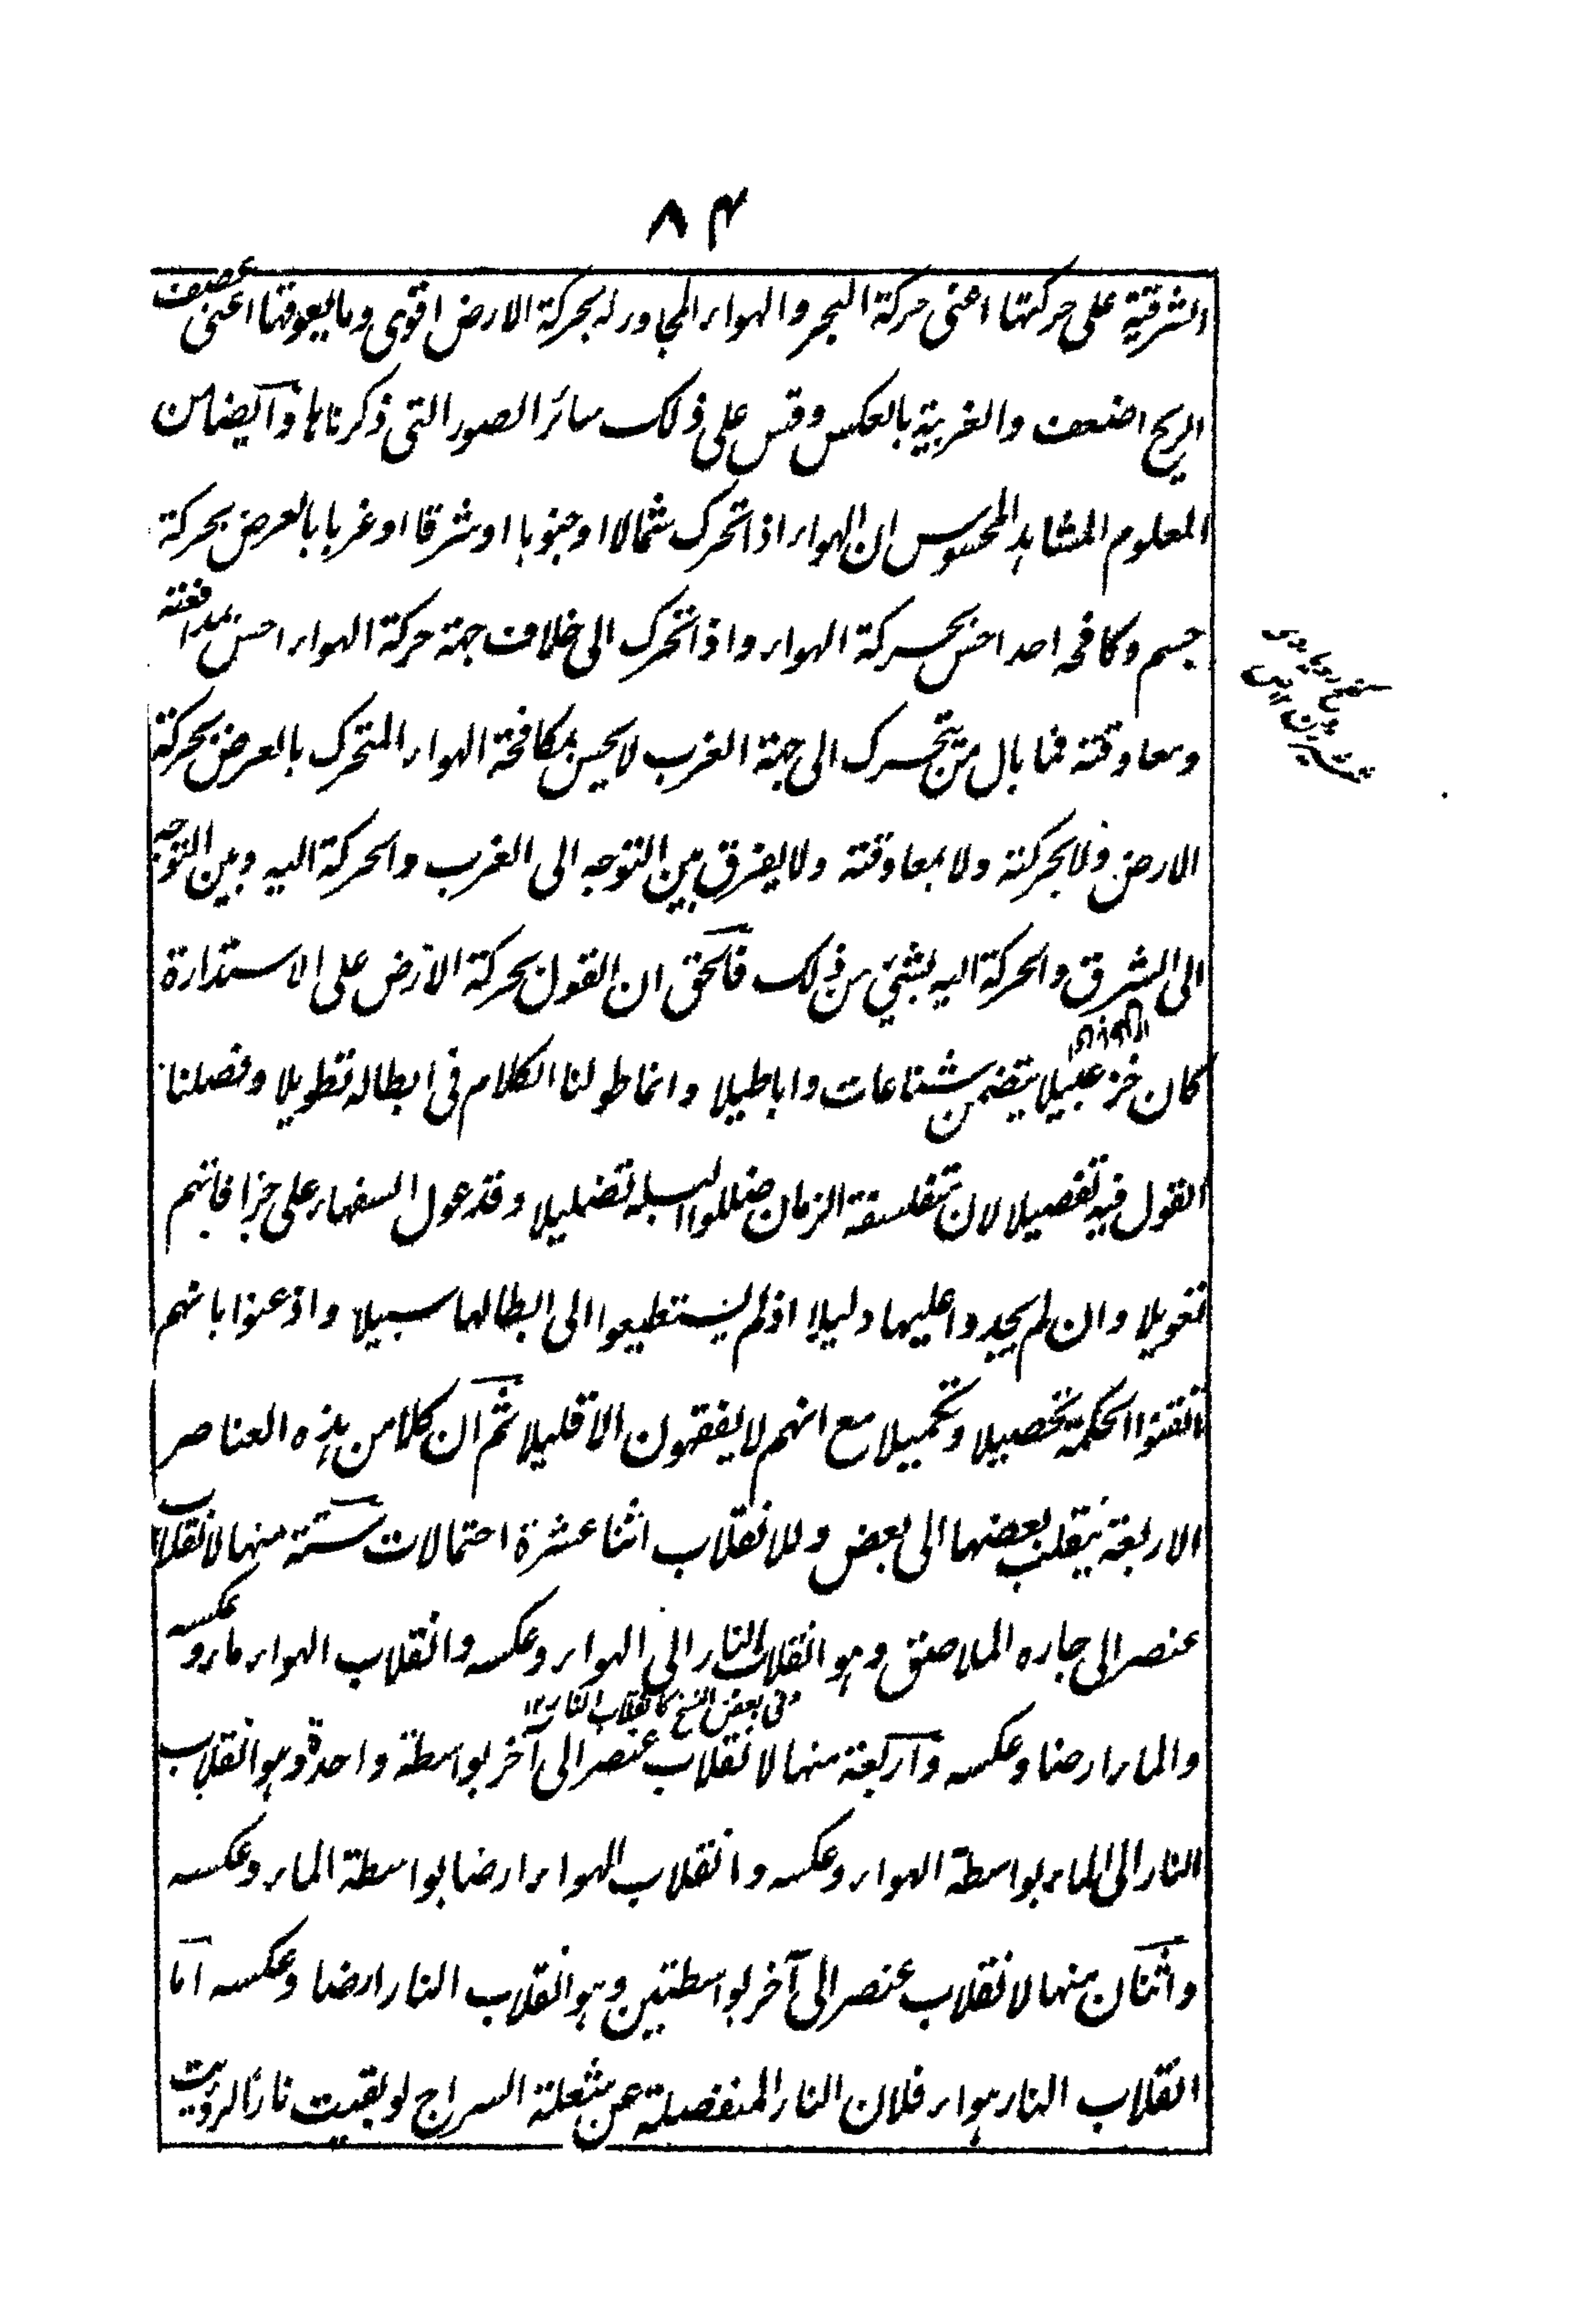 ٨٤
الشرقية على حركتها اعنى حركة البحر والهواء المجاور له بحركة الارض اقوى وما يعوقها اعنى عصيف
الريح اضعف والغربية بالعكس وقس على ذلك سائر الصور التى ذكرناها وايضا من
المعلوم المشاهد المحسوس ان الهواء اذا تحرك شمالا او جنوبا او شرقا او غربا بالعرض بحركة
جسم وكافحه احد احس بحركة الهواء واذا تحرك الى خلاف جهة حركة الهواء احس بمدافعته
ومعاوقته فما بال من يتحرك الى جهة الغرب لا يحس بمكافحة الهواء المتحرك بالعرض بحركة
الارض ولا بحركته ولا بمعاوقته ولا يفرق بين التوجه الى الغرب والحركة اليه وبين التوجه
الى الشرق والحركة اليه بشئ من ذلك فالحق ان القول بحركة الارض على الاستدارة
كان خزعبيلا يتضمن شناعات واباطيلا وانما طولنا الكلام فى ابطاله تطويلا وفصلنا
القول فيه تفصيلا لان متفلسفة الزمان ضللوا البله تضليلا وقد عول السفهاء على جزافاتهم
تعويلا وان لم يجدوا عليها دليلا اذ لم يستطيعوا الى ابطالها سبيلا واذعنوا بانهم
اتقنوا الحكمة تحصيلا وتكميلا مع انهم لا يفقهون الا قليلا ثم ان كلا من هذه العناصر
الاربعة ينقلب بعضها الى بعض وللانقلاب اثنا عشرة احتمالات ستة منها لانقلاب
عنصر الى جاره الملاصق وهو انقلاب النار الى الهواء وعكسه وانقلاب الهواء ماء وعكسه
وفى بعض النسخ كانقلاب النار ١٢
والماء ارضا وعكسه واربعة منها لانقلاب عنصر الى آخر بواسطة واحدة وهو انقلاب
النار الى الماء بواسطة الهواء وعكسه وانقلاب الهواء ارضا بواسطة الماء وعكسه
واثنان منها لانقلاب عنصر الى آخر بواسطتين وهو انقلاب النار ارضا وعكسه اما
انقلاب النار هواء فلان النار المنفصلة عن شعلة السراج لو بقيت نارا لرؤيت